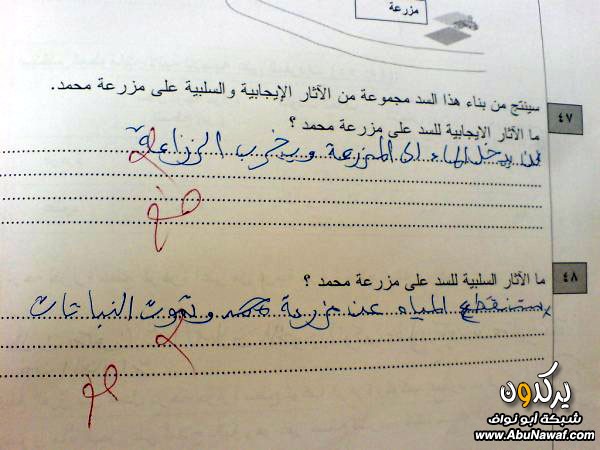 مزرعة
٤٧
سينتج من بناء هذا السد مجموعة من الآثار الإيجابية والسلبية على مزرعة محمد.
ما الآثار الايجابية للسد على مزرعة محمد ؟
يدخل الماء الى المزرعة ويخرب الزراعة
٤٨
ما الآثار السلبية للسد على مزرعة محمد ؟
ستنقطع المياه عن مزرعة محمد وتموت النباتات
يركدون
شبكة أبو نواف
www.AbuNawaf.com